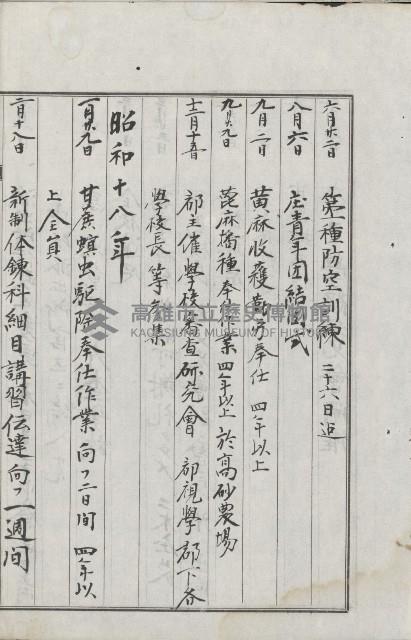 六月廿二日 第一種防空訓練 二十六日迄
八月六日 庄青年団結団式
九月二日 苗麻收穫勤労奉仕 四年以上
九月廿九日 蓖麻播種奉仕作業 四年以上 於高砂農場
十二月十五日 郡主催學校審査研究會 郡視學郡下各
學校長等参集
昭和十八年
一月廿九日 甘蔗螟虫駆除奉仕作業 向フ二日間 四年以
上全員
二月十八日 新制体錬科細目講習伝達向フ一週間
高雄市立歷史博物館
KAOHSIUNG MUSEUM OF HISTORY